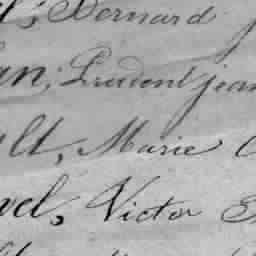 t, Bernard
an, Prudent jean
ult, Marie
vel, Victor